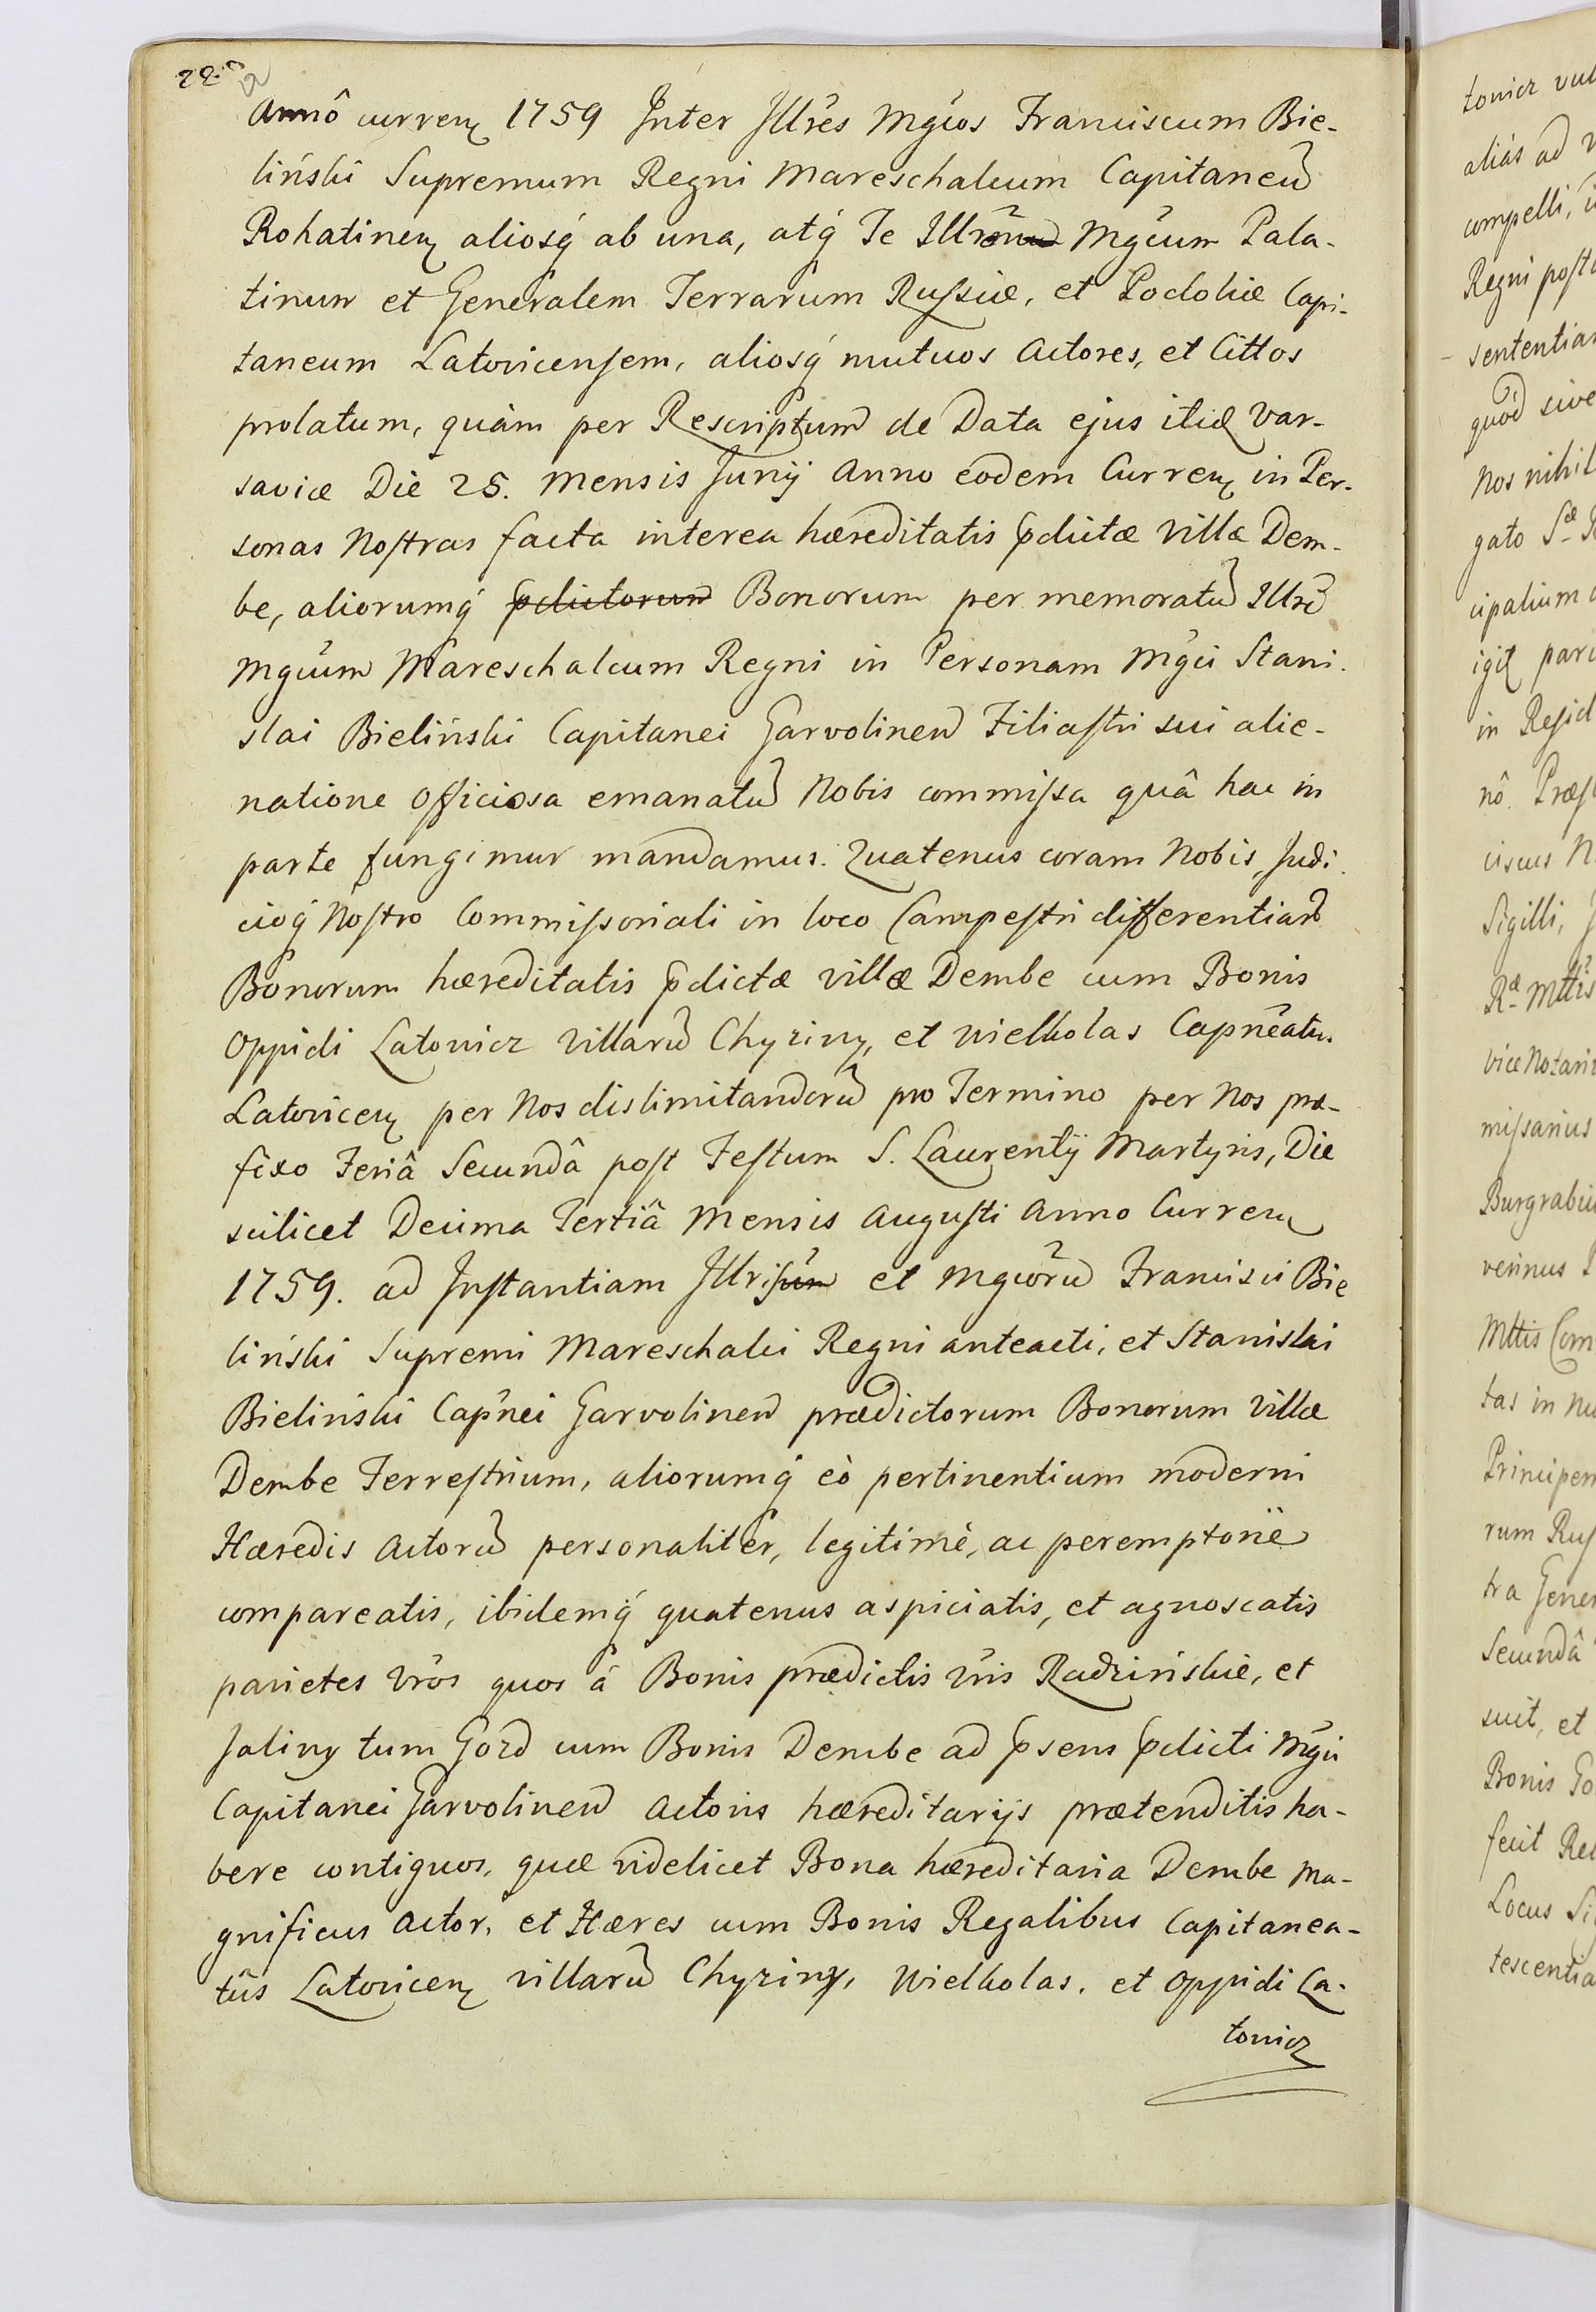 Annô curren 1759 Inter Illr̃es Mgc̃os Franciscum Bie-
liński Supremum Regni Mareschalcum Capitaneũ
Rohatinen aliosq́ ab una, atq́ Te Illrem̃ Mgc̃um Pala-
tinum et Generalem Terrarum Russiæ, et Podoliæ Capi-
taneum Latovicensem, aliosq́ mutuos Actores, et Cittos
prolatum, quàm per Rescriptum de Data ejus itid Var-
saviæ Die 25. Mensis Junij Anno eodem Curren in Per-
sonas Nostras facta interea hæreditatis pdictæ villæ Dem-
be, aliorumq́ pdictorum Bonorum per memoratũ Illrẽ
Mgcum Mareschalcum Regni in Personam Mgc̃i Stani-
slai Bieliński Capitanei Garvolinen Filiastri sui alie-
natione officiosa emanatũ Nobis commissa quâ hac in
parte fungimur mandamus. Quatenus coram Nobis, Judi-
cioq́ Nostro Commissoriali in loco Campestri differentiarũ
Bonorum hæreditatis pdictæ villæ Dembe cum Bonis
Oppidi Latowicz Villarũ Chyziny, et Wielkolas Capñeatu.
Latovicen per Nos dislimitandorũ pro Termino per Nos præ-
fixo Feriâ Secundâ post Festum S. Laurentij Martyris, Die
scilicet Decima Tertiâ Mensis Augusti Anno Curren
1759. ad Instantiam Illrisũm et Mgcõrũ Francisci Bie
liński Supremi Mareschalci Regni anteacti, et Stanislai
Bieliński Cap̃nei Garvolinen prædictorum Bonorum Villæ
Dembe Terrestrium, aliorumq́ eò pertinentium moderni
Hæredis Actorũ personalitèr, legitimè, ac peremptoriè
compareatis, ibidemq́ quatenus aspiciatis, et agnoscatis
parietes vr̃os quos á Bonis prædictis vr̃is Radzińskie, et
Jaliny tum Gozd cum Bonis Dembe ad psens pdicti Mgc̃i
Capitanei Garvolinen Actoris hæreditarijs prætenditis ha-
bere contiguos, quæ videlicet Bona hæreditaria Dembe Ma-
gnificus Actor, et Hæres cum Bonis Regalibus Capitanea-
tûs Latovicen villarũ Chyziny, Wielkolas, et Oppidi La-
towicz